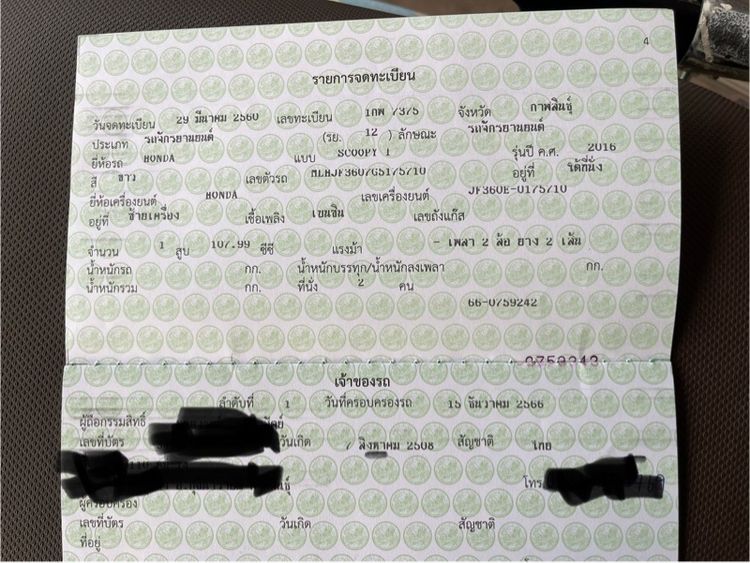 4
รายการจดทะเบียน
วันจดทะเบียน 29 มีนาคม 2560 เลขทะเบียน 1กพ 7375 จังหวัด กาฬสินธุ์
ประเภท รถจักรยานยนต์ (รย. 12 ) ลักษณะ รถจักรยานยนต์
ยี่ห้อรถ HONDA แบบ SCOOPY I รุ่นปี ค.ศ. 2016
สี ขาว เลขตัวรถ MLHJF3607G5175710 อยู่ที่ ใต้ที่นั่ง
ยี่ห้อเครื่องยนต์ HONDA เลขเครื่องยนต์ JF36OE-0175710
อยู่ที่ ซ้ายเครื่อง เชื้อเพลิง เบนซิน เลขถังแก๊ส
จำนวน 1 สูบ 107.99 ซีซี แรงม้า - เพลา 2 ล้อ ยาง 2 เส้น
น้ำหนักรถ กก. น้ำหนักบรรทุก/น้ำหนักลงเพลา กก.
น้ำหนักรวม กก. ที่นั่ง 2 คน
66-0759242
เจ้าของรถ
ลำดับที่ 1 วันที่ครอบครองรถ 15 ธันวาคม 2566
ผู้ถือกรรมสิทธิ์
เลขที่บัตร วันเกิด 7 สิงหาคม 2508 สัญชาติ ไทย
โทร
ผู้ครอบครอง
เลขที่บัตร วันเกิด สัญชาติ
ที่อยู่